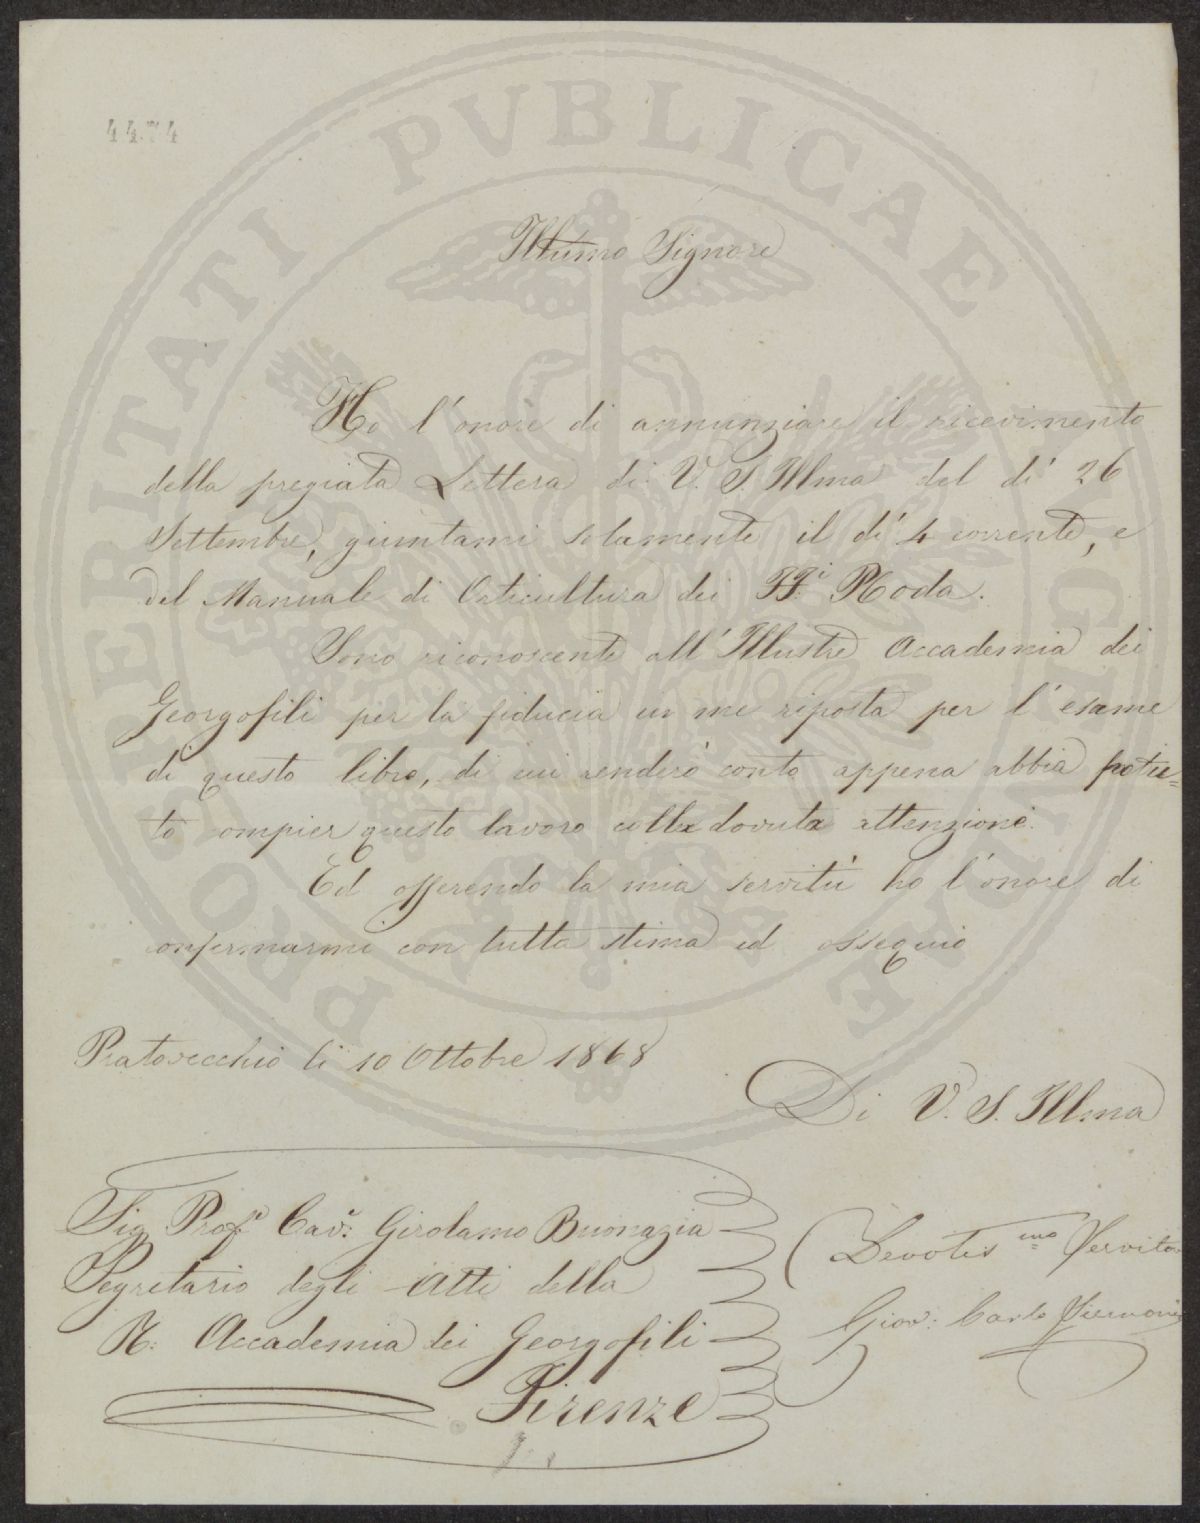 4474
PROSPERITATI PVBLICAE AVGENDAE
Illŭmo Signore
Ho l'onore di annunziare il ricevimento
della pregiata Lettera di V. S. Illma del dì 26
Settembre, giuntami solamente il dì 4 corrente, e
del Manuale di Orticultura dei FF.i Roda.
Sono riconoscente all'Illustre Accademia dei
Georgofili per la fiducia in me riposta per l'esame
di questo libro, di cui renderò conto appena abbia potu=
to compier questo lavoro colla dovuta attenzione.
Ed offerendo la mia servitù ho l'onore di
confermarmi con tutta stima ed ossequio
Pratovecchio li 10 Ottobre 1868
Di V. S. Illma
Sig Prof.e Cav.e Girolamo Buonazia
Segretario degli Atti della
R. Accademia dei Georgofili
Firenze
Devotis.mo Servitor
Giov: Carlo Siemoni